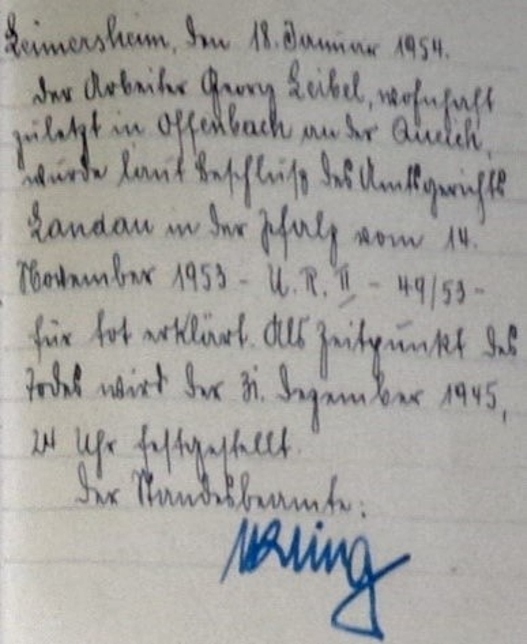 Leimersheim, den 18. Januar 1954.
Der Arbeiter Georg Leibel, wohnhaft
zuletzt in Offenbach an der Queich,
wurde laut Beschluß des Amtsgerichts
Landau in der Pfalz vom 14.
November 1953 - U. R. II - 49/53 -
für tot erklärt. Als Zeitpunkt des
Todes wird der 31. Dezember 1945,
24 Uhr festgestellt.
Der Standesbeamte: